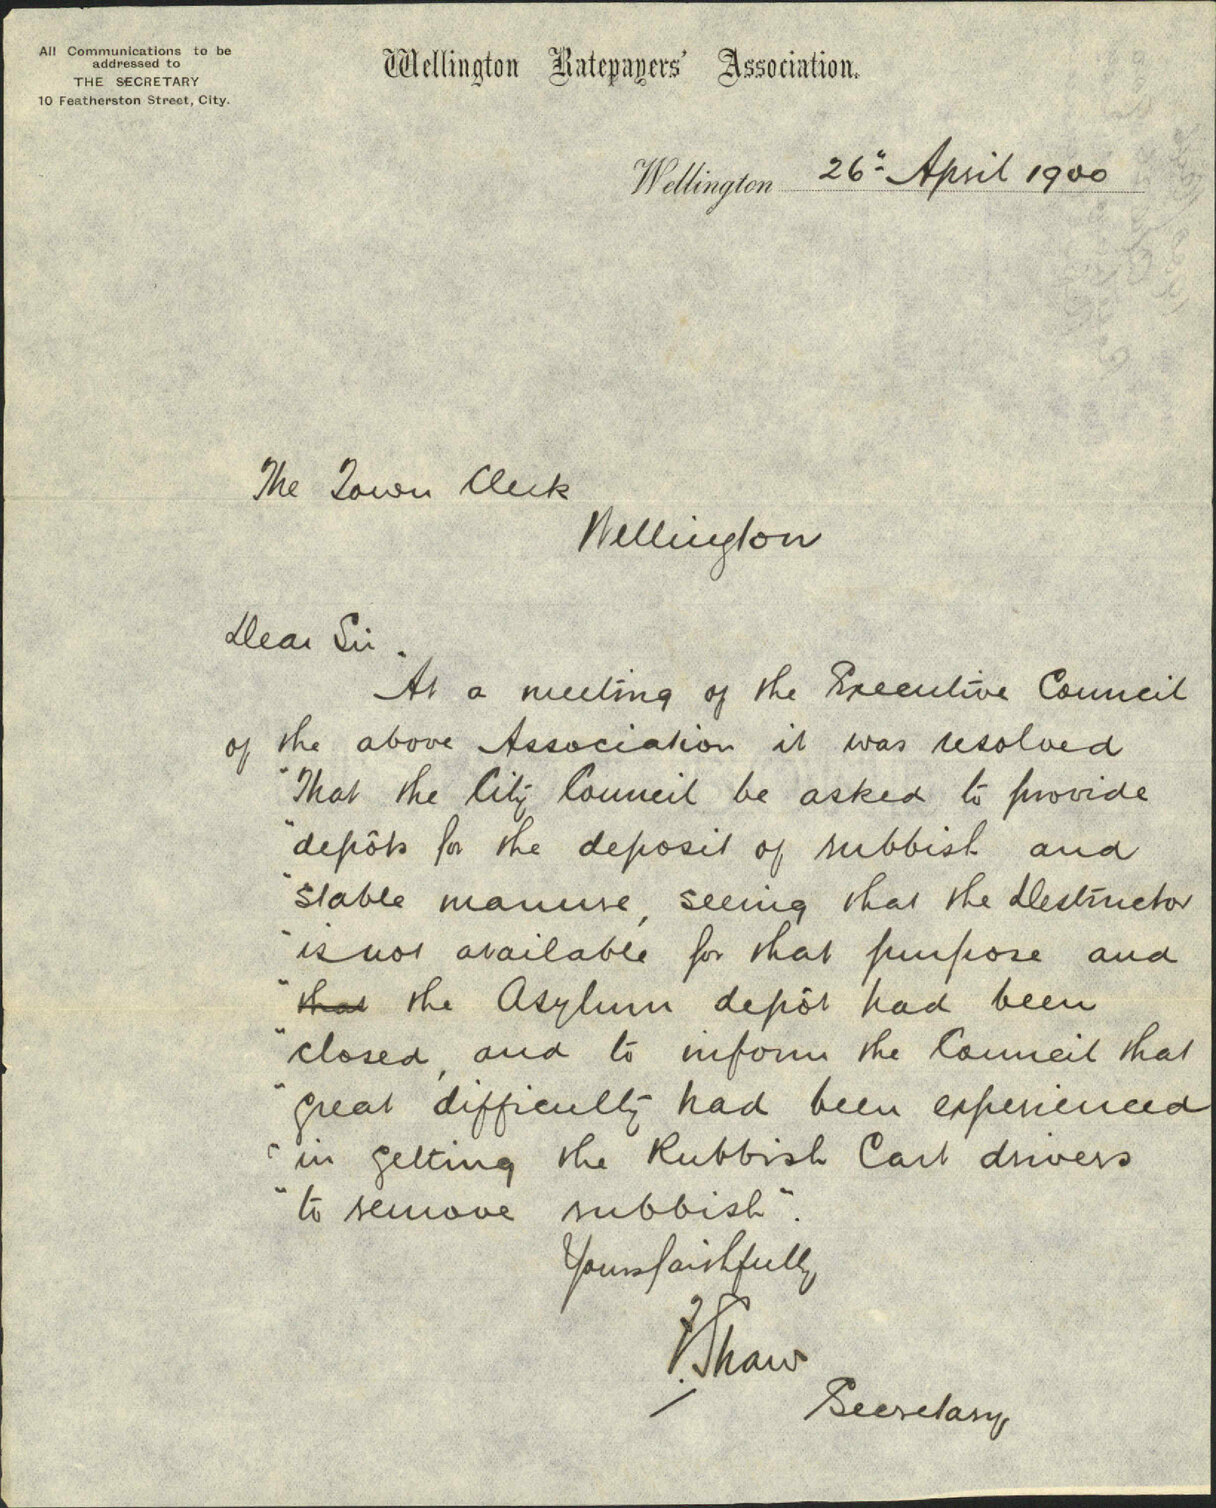 All Communications to be
addressed to
THE SECRETARY
10 Featherston Street, City.
Wellington Ratepayers' Association.
Wellington 26" April 1900
The Town Clerk
Wellington
Dear Sir.
At a meeting of the Executive Council
of the above Association it was resolved
"That the City Council be asked to provide
"depôts for the deposit of rubbish and
"stable manure, seeing that the Destructor
"is not available for that purpose and
"that the Asylum depôt had been
"closed, and to inform the Council that
"great difficulty had been experienced
"in getting the Rubbish Cart drivers
"to remove rubbish".
Yours faithfully
F. Shaw
Secretary